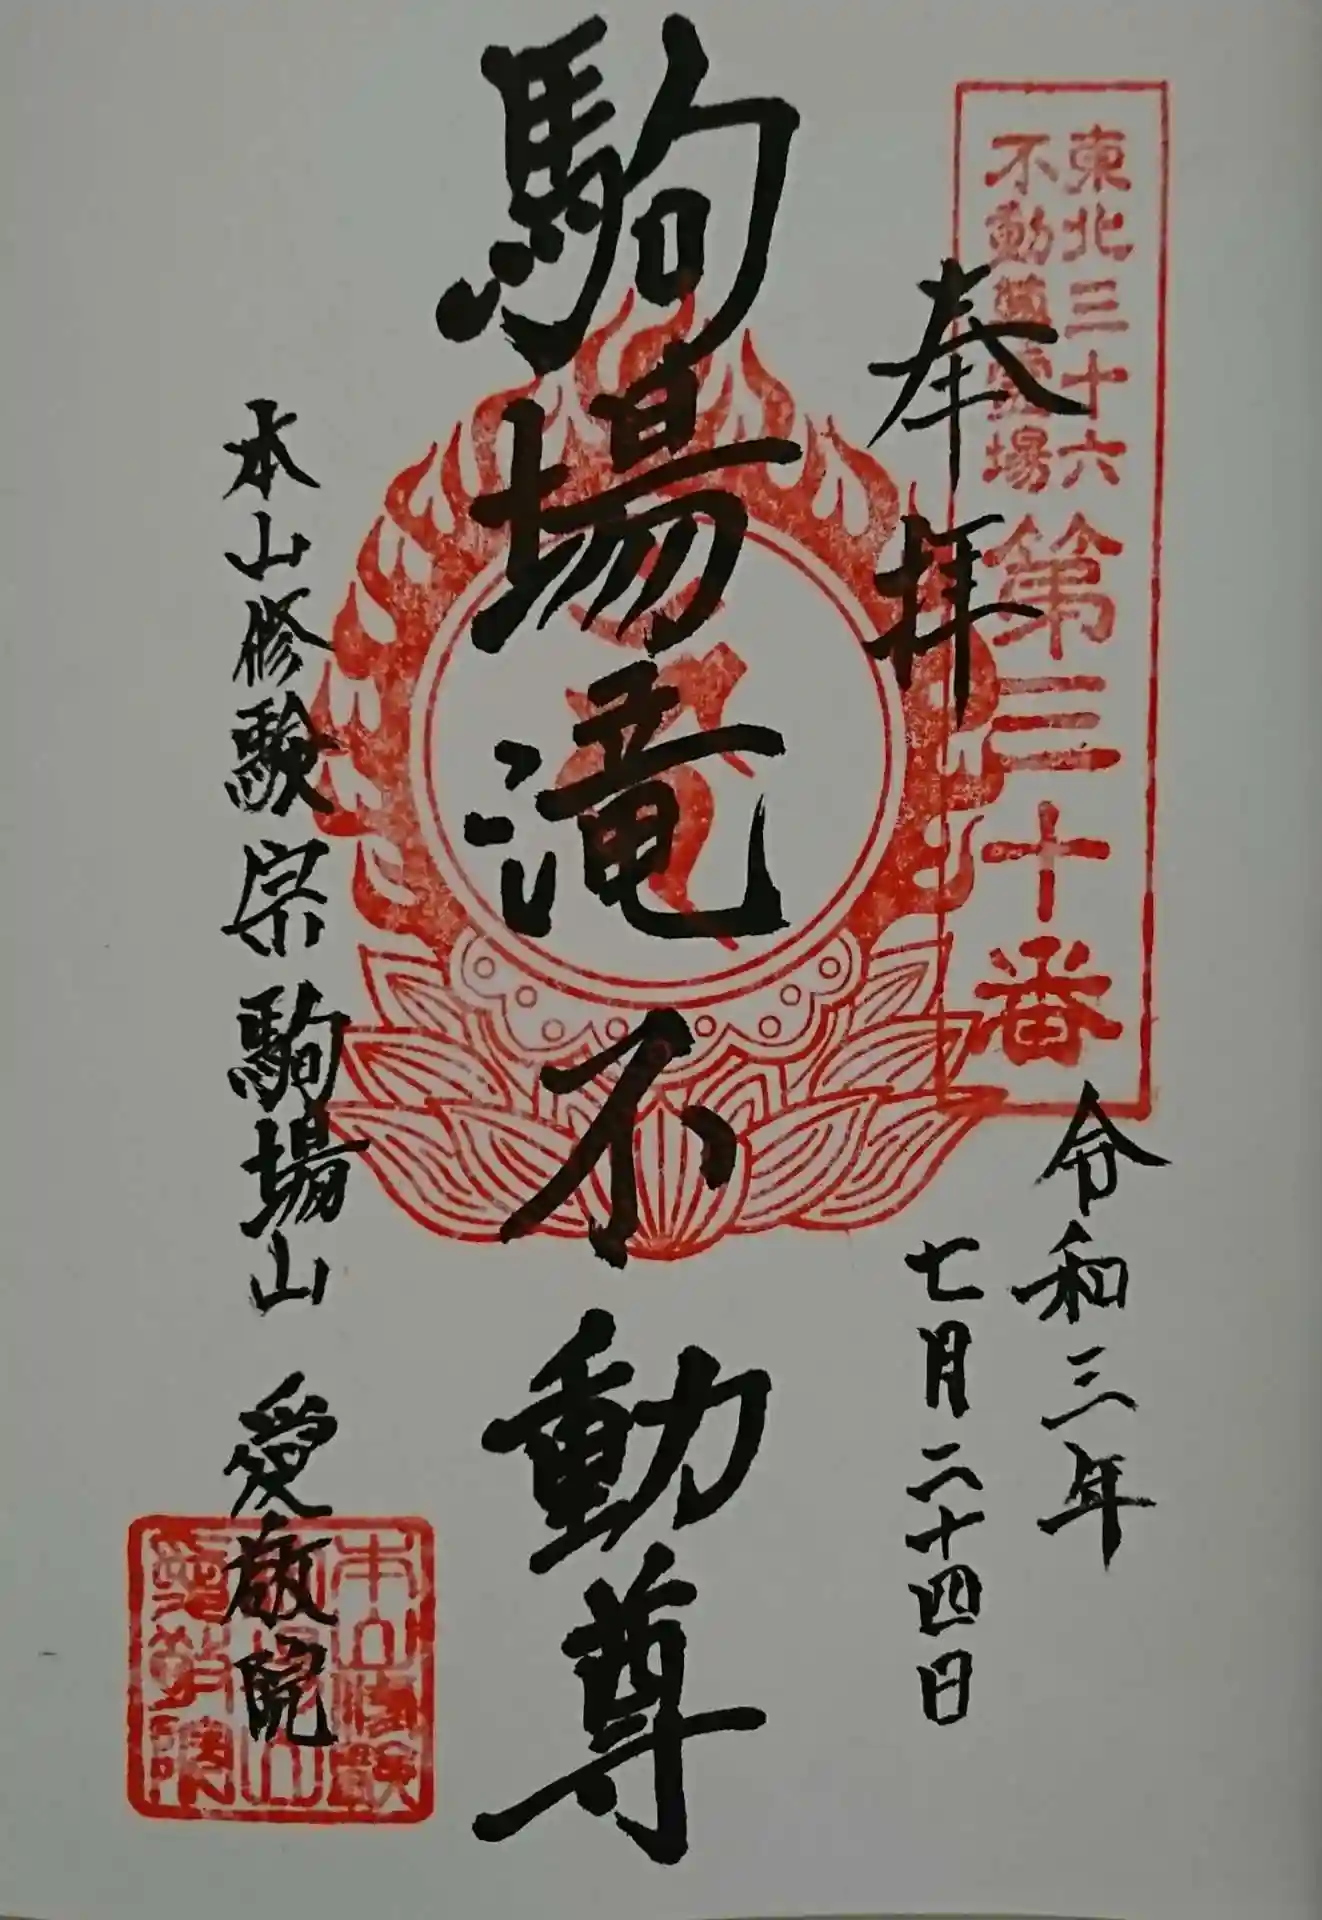 東北三十六
不動尊霊場
第三十番
奉拝
令和三年
七月二十四日
駒場滝不動尊
本山修験宗 駒場山 愛敬院
本山修験
愛敬院